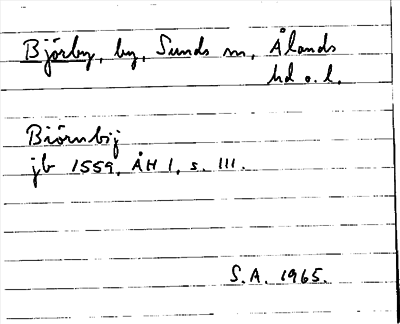 Björby, by, Sunds sn, Ålands
hd o. l.
Biörnbij
jb 1559. ÅH 1, s. 111.
S.A. 1965.